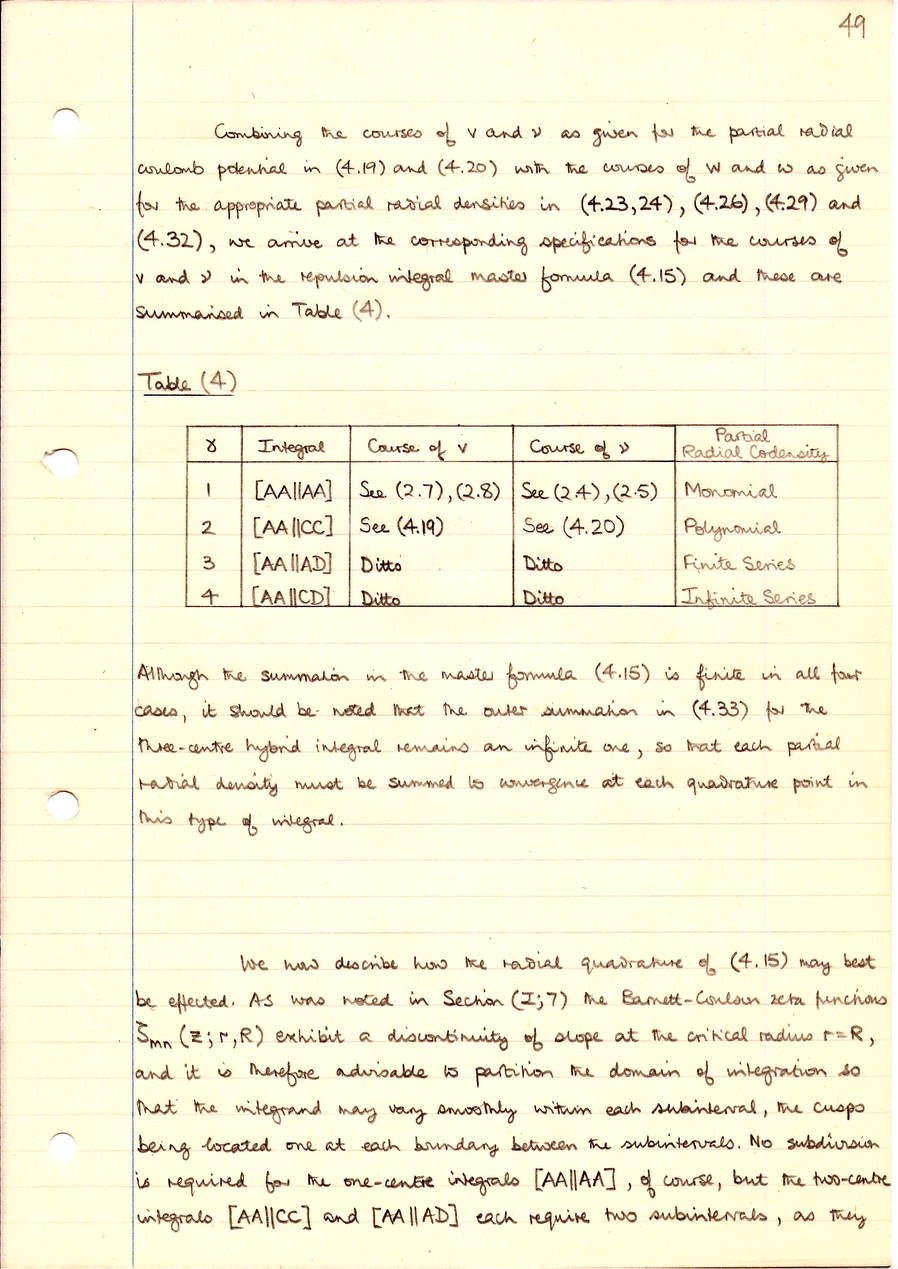 49
Combining the courses of v and ν as given for the partial radial
coulomb potential in (4.19) and (4.20) with the courses of W and ω as given
for the appropriate partial radial densities in (4.23,24), (4.26), (4.29) and
(4.32), we arrive at the corresponding specifications for the courses of
v and ν in the repulsion integral master formula (4.15) and these are
summarised in Table (4).
Table (4)
γ Integral Course of v Course of ν Partial Radial Codensity
1 [AA||AA] See (2.7),(2.8) See (2.4),(2.5) Monomial
2 [AA||CC] See (4.19) See (4.20) Polynomial
3 [AA||AD] Ditto Ditto Finite Series
4 [AA||CD] Ditto Ditto Infinite Series
Although the summation in the master formula (4.15) is finite in all four
cases, it should be noted that the outer summation in (4.33) for the
three-centre hybrid integral remains an infinite one, so that each partial
radial density must be summed to convergence at each quadrature point in
this type of integral.
We now describe how the radial quadrature of (4.15) may best
be effected. As was noted in Section (I;7) the Barnett-Coulson zeta functions
ζmn (z; r,R) exhibit a discontinuity of slope at the critical radius r=R,
and it is therefore advisable to partition the domain of integration so
that the integrand may vary smoothly within each subinterval, the cusps
being located one at each boundary between the subintervals. No subdivision
is required for the one-centre integrals [AA||AA], of course, but the two-centre
integrals [AA||CC] and [AA||AD] each require two subintervals, as they